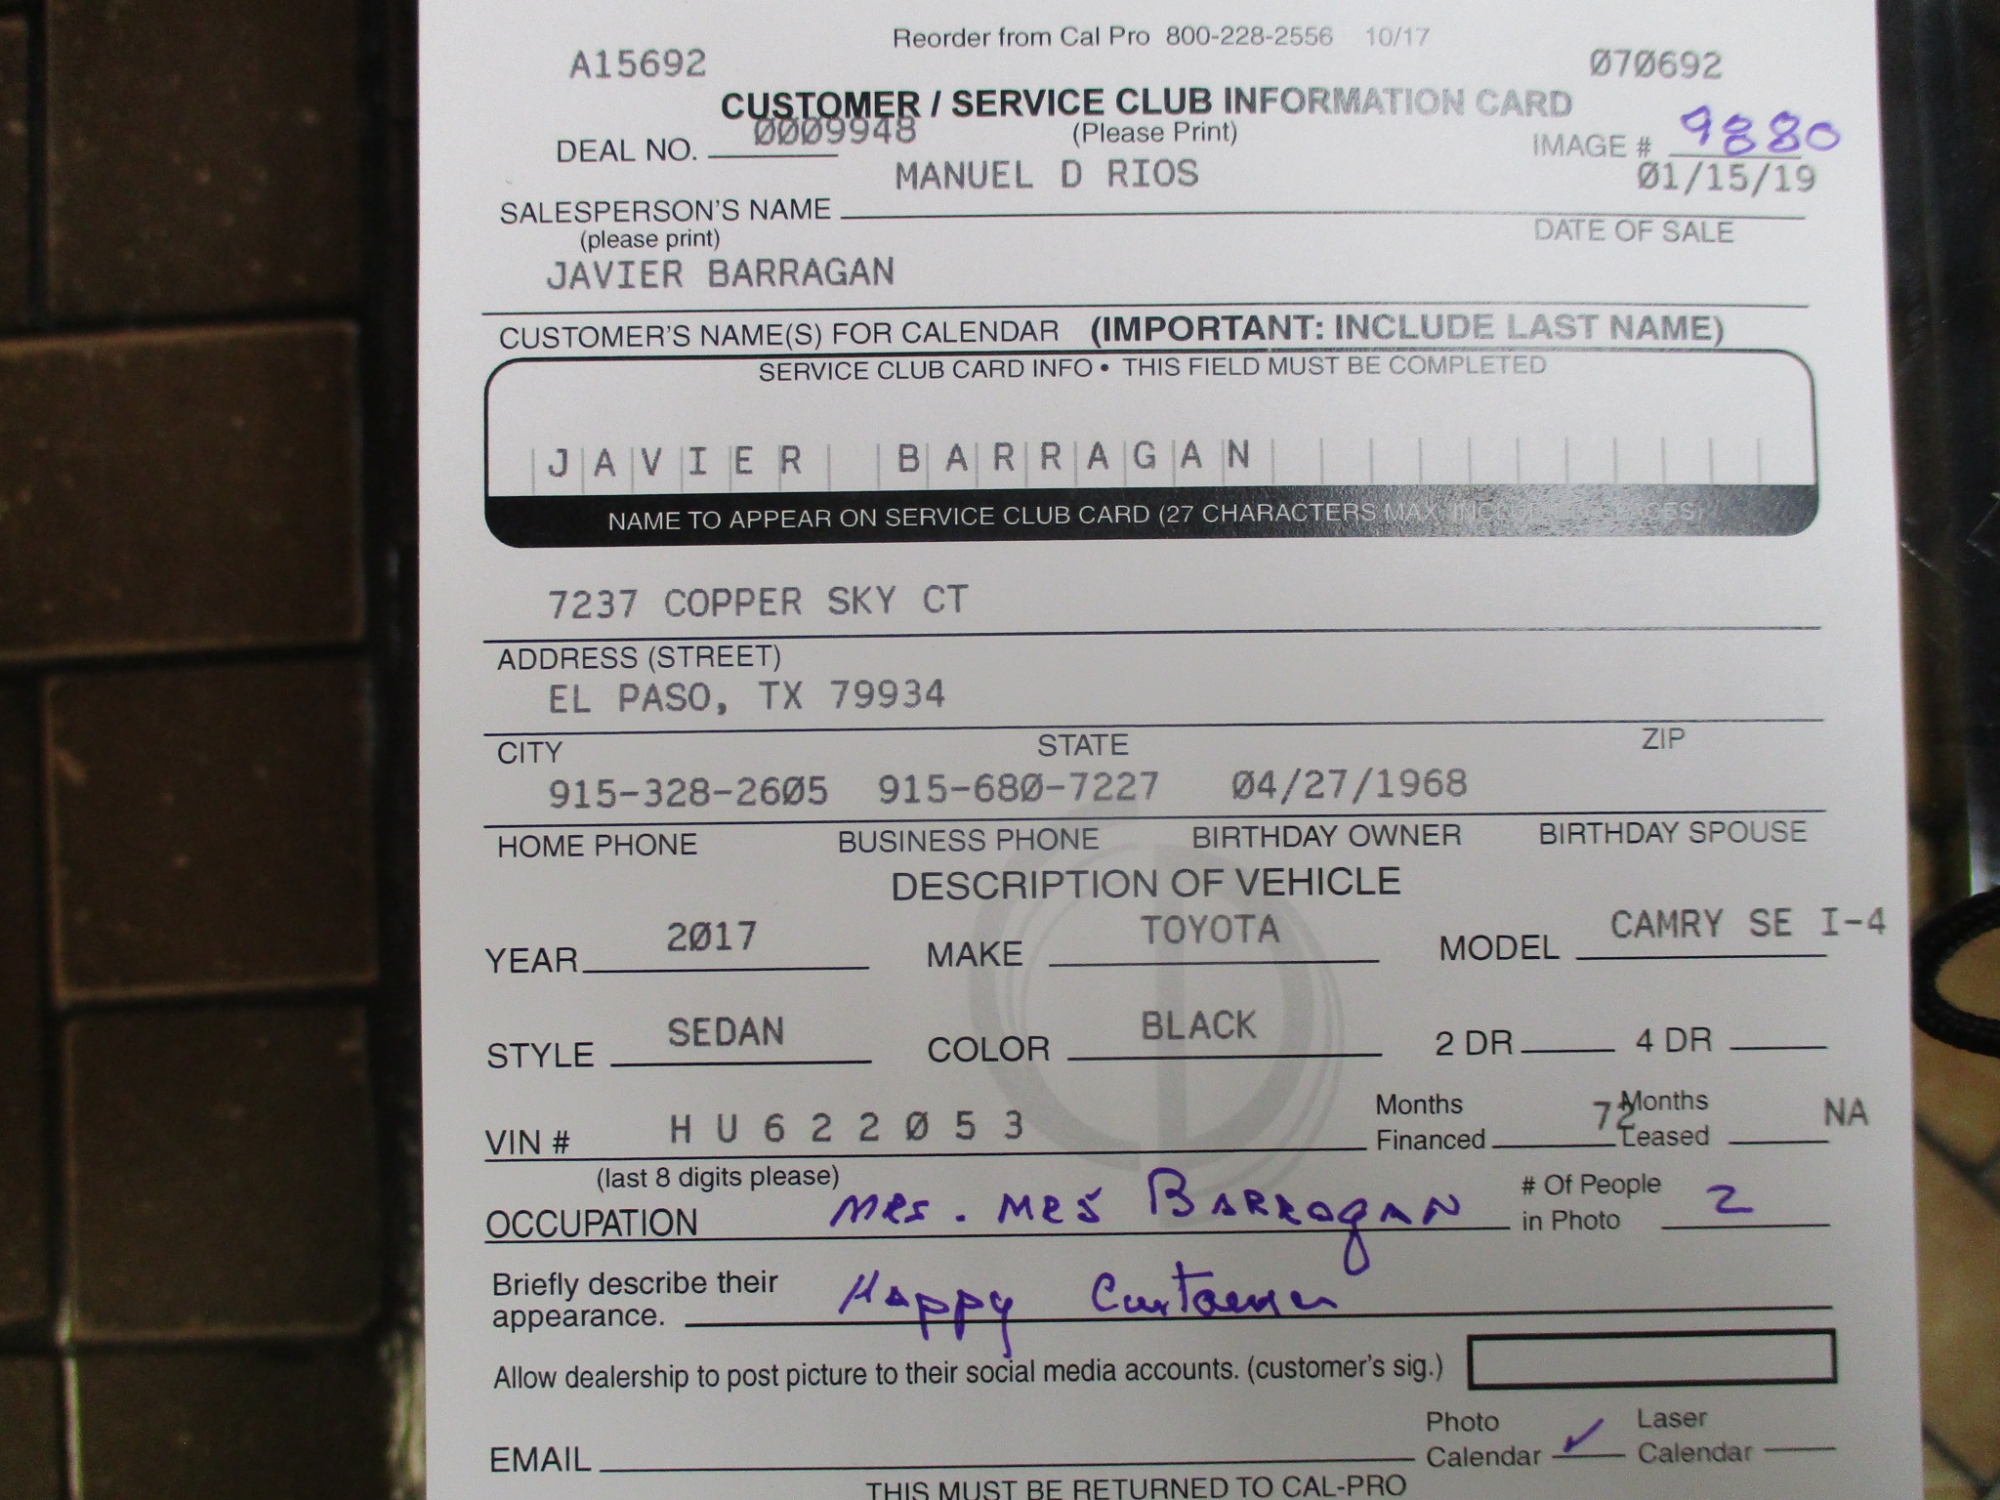 Reorder from Cal Pro 800-228-2556 10/17
A15692 070692
CUSTOMER / SERVICE CLUB INFORMATION CARD
DEAL NO. 0009948 (Please Print) IMAGE # 9880
MANUEL D RIOS 01/15/19
SALESPERSON'S NAME
(please print) DATE OF SALE
JAVIER BARRAGAN
CUSTOMER'S NAME(S) FOR CALENDAR (IMPORTANT: INCLUDE LAST NAME)
SERVICE CLUB CARD INFO • THIS FIELD MUST BE COMPLETED
JAVIER BARRAGAN
NAME TO APPEAR ON SERVICE CLUB CARD (27 CHARACTERS MAX, INCLUDING SPACES)
7237 COPPER SKY CT
ADDRESS (STREET)
EL PASO, TX 79934
CITY STATE ZIP
915-328-2605 915-680-7227 04/27/1968
HOME PHONE BUSINESS PHONE BIRTHDAY OWNER BIRTHDAY SPOUSE
DESCRIPTION OF VEHICLE
YEAR 2017 MAKE TOYOTA MODEL CAMRY SE I-4
STYLE SEDAN COLOR BLACK 2 DR 4 DR
VIN # H U 6 2 2 0 5 3 Months Financed 72 Months Leased NA
(last 8 digits please)
OCCUPATION MRS. MRS BARRAGAN # Of People in Photo 2
Briefly describe their
appearance. Happy Customer
Allow dealership to post picture to their social media accounts. (customer's sig.)
EMAIL Photo Calendar ✓ Laser Calendar
THIS MUST BE RETURNED TO CAL-PRO